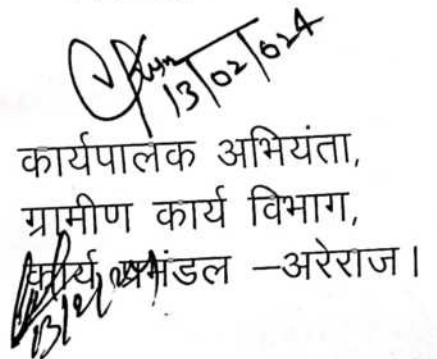 13/02/024
कार्यपालक अभियंता,
ग्रामीण कार्य विभाग,
कार्य प्रमंडल –अरेराज।